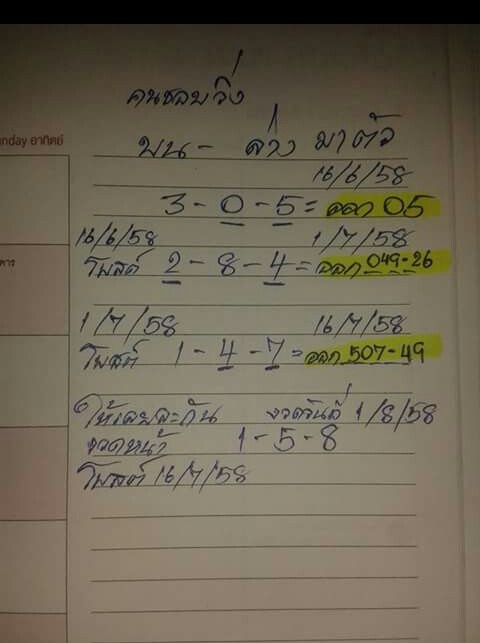 คนชอบวิ่ง
unday อาทิตย์
บน - ล่าง มาตัว
16/6/58
3 - 0 - 5 = ออก 05
16/6/58 1/7/58
คาร
โพสต์ 2 - 8 - 4 = ออก 049-26
1/7/58 16/7/58
โพสต์ 1 - 4 - 7 = ออก 507-49
ให้เลยละกัน งวดวันที่ 1/8/58
งวดหน้า 1 - 5 - 8
โพสต์ 16/7/58